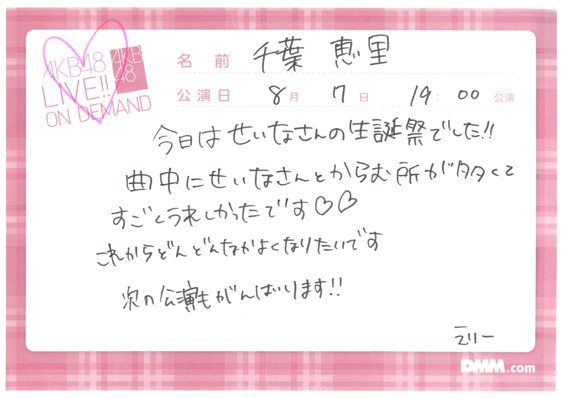 AKB48
LIVE!!
ON DEMAND
AKB
48
名前 千葉 恵里
公演日 8月 7日 19:00 公演
今日はせいなさんの生誕祭でした!!
曲中にせいなさんとからむ所が多くて
すごくうれしかったです♡♡
これからどんどんなかよくなりたいです
次の公演もがんばります!!
えりー
DMM.com